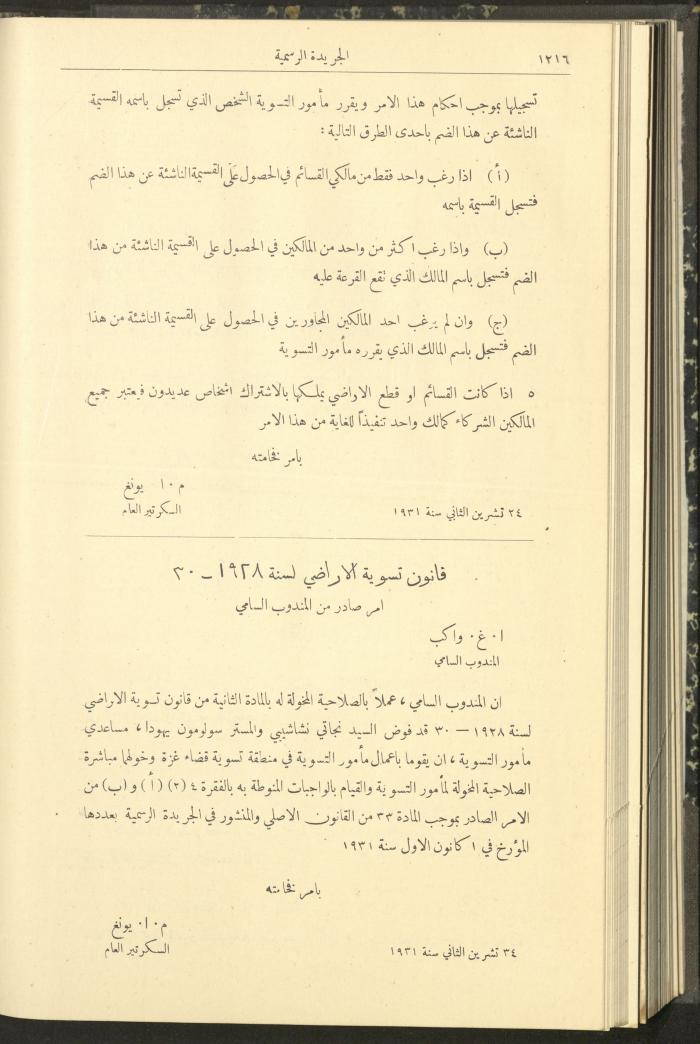 ١٢١٦
الجريدة الرسمية
تسجيلها بموجب احكام هذا الامر ويقرر مأمور التسوية الشخص الذي تسجل باسمه القسيمة
الناشئة عن هذا الضم باحدى الطرق التالية :
(أ) اذا رغب واحد فقط من مالكي القسائم في الحصول على القسيمة الناشئة عن هذا الضم
فتسجل القسيمة باسمه
(ب) واذا رغب اكثر من واحد من المالكين في الحصول على القسيمة الناشئة من هذا
الضم فتسجل باسم المالك الذي تقع القرعة عليه
(ج) وان لم يرغب احد المالكين المجاورين في الحصول على القسيمة الناشئة من هذا
الضم فتسجل باسم المالك الذي يقرره مأمور التسوية
٥ اذا كانت القسائم او قطع الاراضي يملكها بالاشتراك اشخاص عديدون فيعتبر جميع
المالكين الشركاء كمالك واحد تنفيذاً للغاية من هذا الامر
بامر فخامته
م ٠ ا ٠ يونغ
السكرتير العام
٢٤ تشرين الثاني سنة ١٩٣١
قانون تسوية الاراضي لسنة ١٩٢٨ – ٣٠
امر صادر من المندوب السامي
ا ٠ غ ٠ واكب
المندوب السامي
ان المندوب السامي ، عملاً بالصلاحية المخولة له بالمادة الثانية من قانون تسوية الاراضي
لسنة ١٩٢٨ — ٣٠ قد فوض السيد نجاتي نشاشيبي والمستر سولومون يهودا ، مساعدي
مأمور التسوية ، ان يقوما باعمال مأمور التسوية في منطقة تسوية قضاء غزة وخولهما مباشرة
الصلاحية المخولة لمأمور التسوية والقيام بالواجبات المنوطة به بالفقرة ٤ (٢) (أ) و (ب) من
الامر الصادر بموجب المادة ٣٣ من القانون الاصلي والمنشور في الجريدة الرسمية بعددها
المؤرخ في ١ كانون الاول سنة ١٩٣١
بامر فخامته
م ٠ ا ٠ يونغ
السكرتير العام
٣٤ تشرين الثاني سنة ١٩٣١